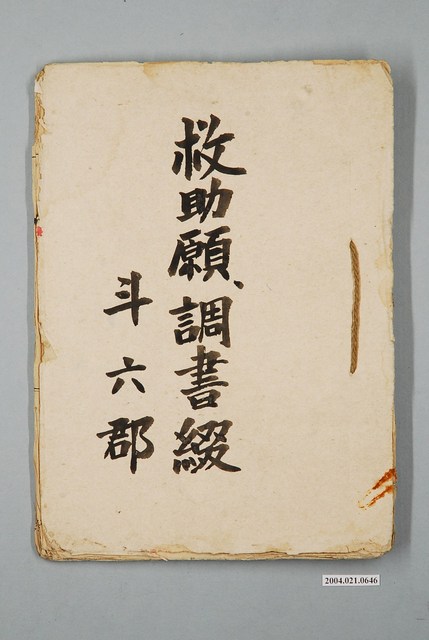 救助願、調書綴
斗六郡
2004.021.0646